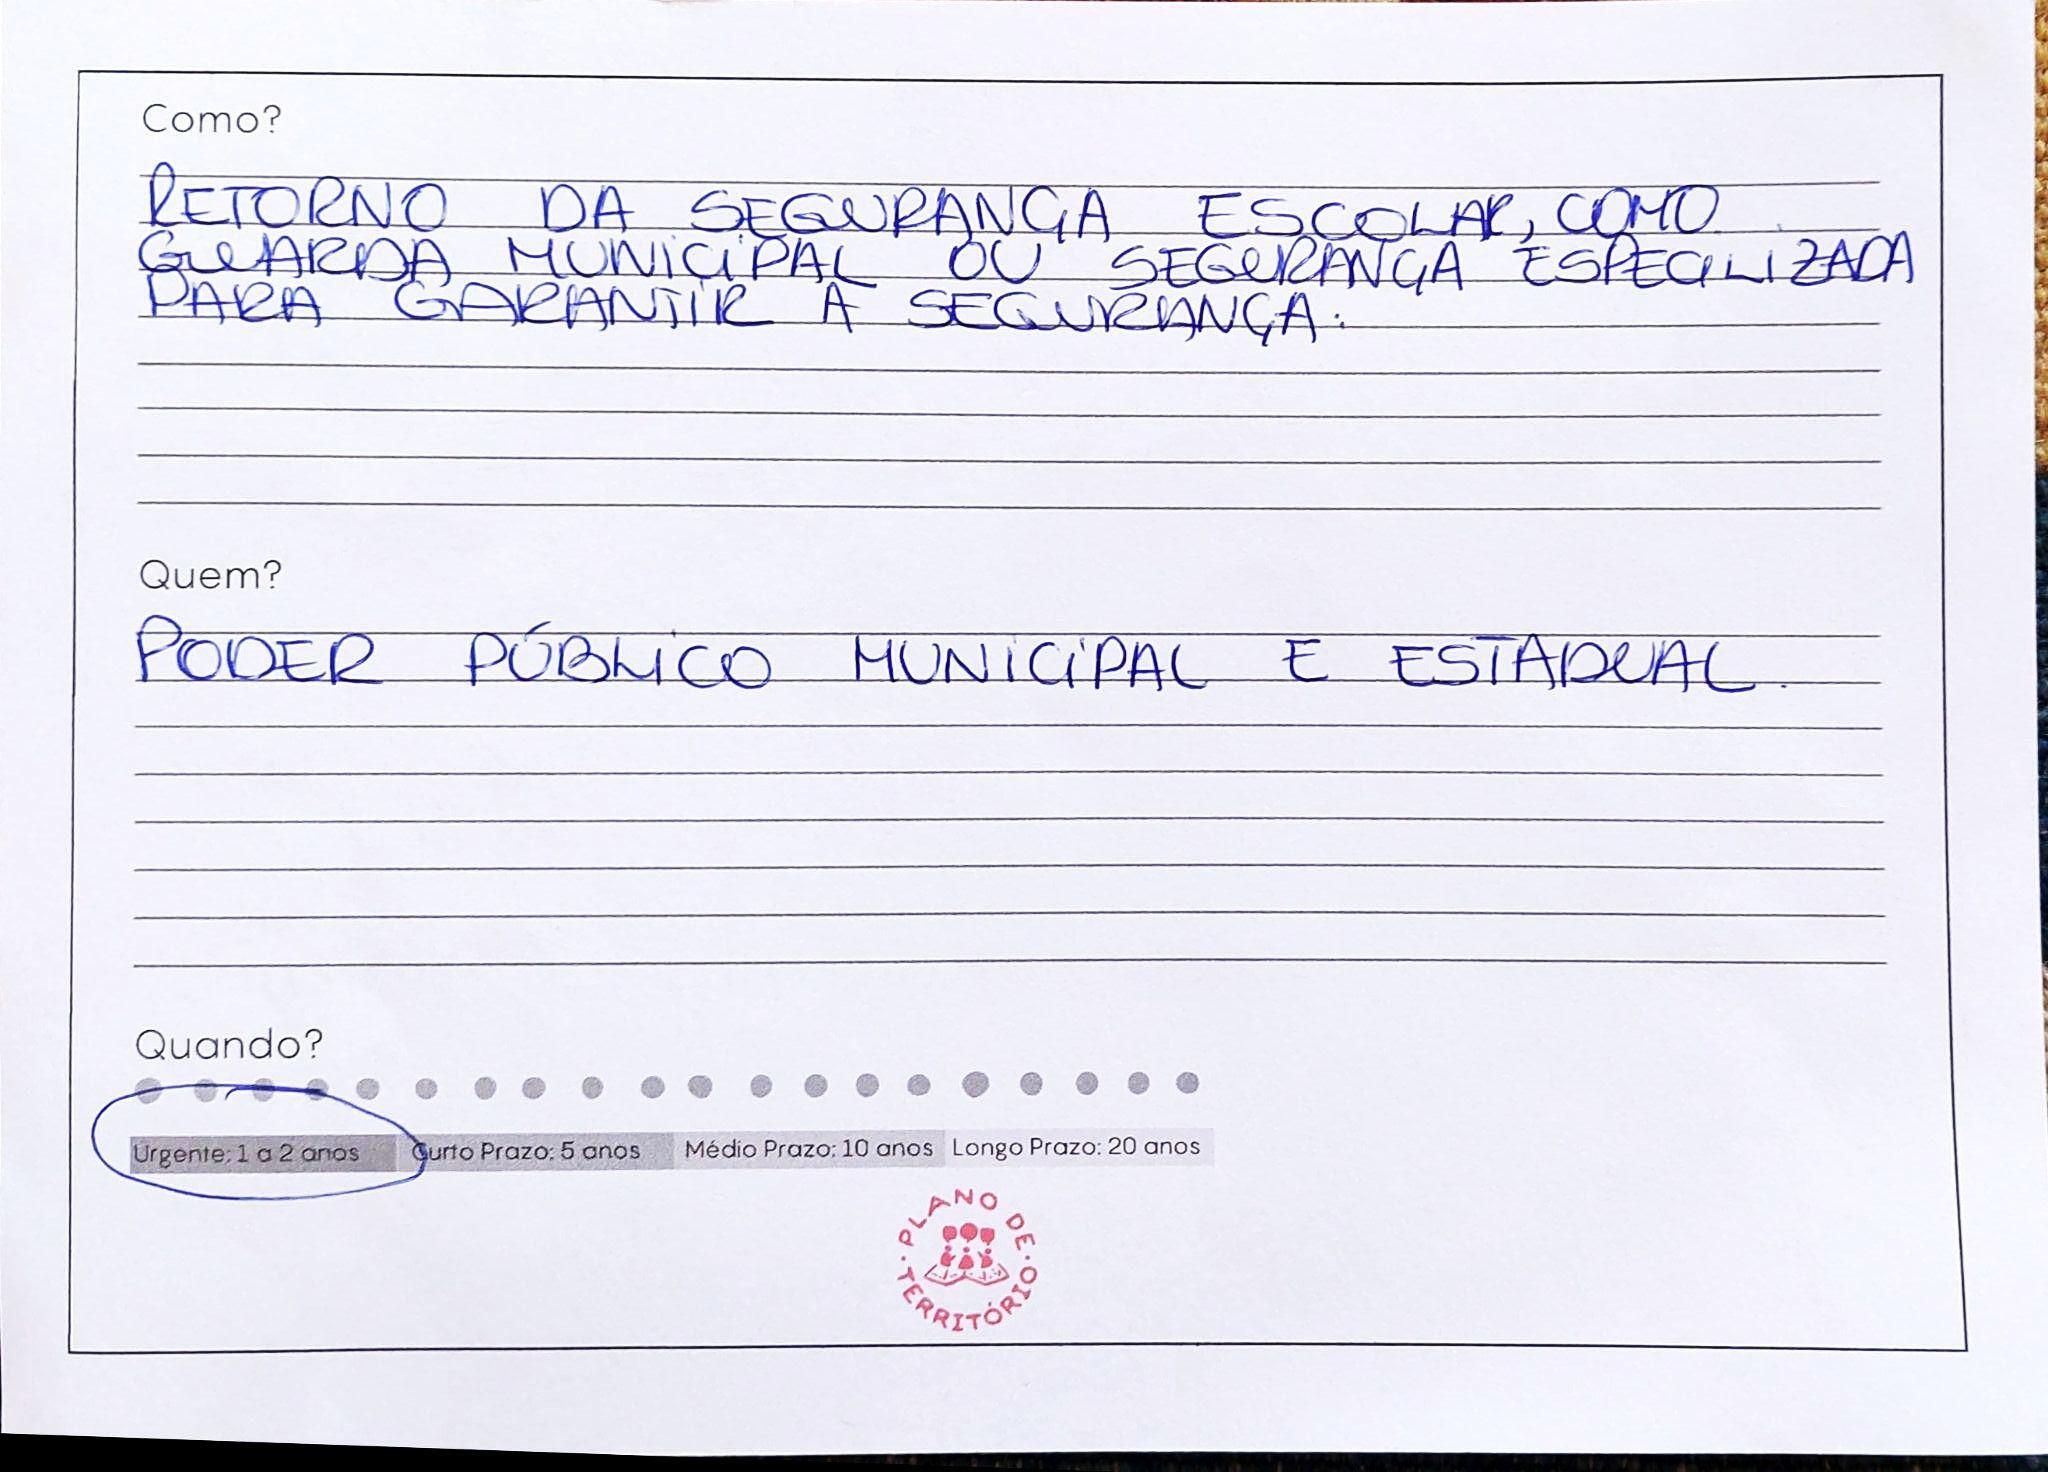 Como?
RETORNO DA SEGURANÇA ESCOLAR, COMO
GUARDA MUNICIPAL OU SEGURANÇA ESPECILIZADA
PARA GARANTIR A SEGURANÇA.
Quem?
PODER PÚBLICO MUNICIPAL E ESTADUAL.
Quando?
Urgente: 1 a 2 anos Curto Prazo: 5 anos Médio Prazo: 10 anos Longo Prazo: 20 anos
PLANO DE
TERRITÓRIO